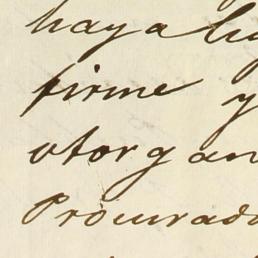 haya
firme y
otorgan
Procurado